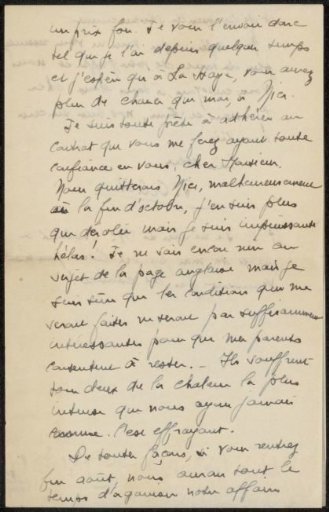 un prix fou. Je vous l'envoie donc
tel que je l'ai depuis quelque temps
et j'espère qu'à La Haye, vous aurez
plus de chance que moi, à Nice.
Je suis toute prête à adhérer au
contrat que vous me ferez ayant toute
confiance en vous, cher Monsieur.
Nous quitterons Nice, malheureusement
à la fin d'octobre, j'en suis plus
que désolée mais je suis impuissante
hélas! Je ne sais encore rien au
sujet de la page anglaise mais je
suis sûre que les conditions qui me
seront faites ne seront pas suffisamment
intéressantes pour que mes parents
consentent à rester. — Ils souffrent
tous deux de la chaleur la plus
intense que nous ayons jamais
connue. C'est effrayant.
De toutes façons, si vous rentrez
fin août, nous aurons tout le
temps d'organiser notre affaire